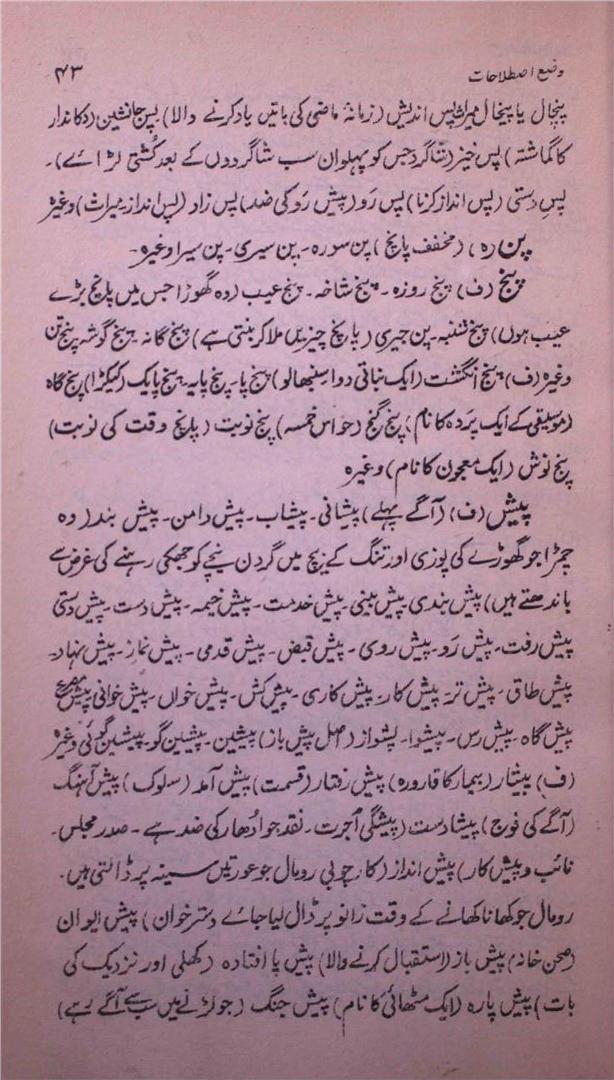 وضع اصطلاحات
۴۳
پنچال یا پیخال میراث پس اندیش (زمانۂ ماضی کی باتیں یاد کرنے والا) پس جانشین (دکاندار
کا گماشتہ) پس خیز (شاگرد جس کو پہلوان سب شاگردوں کے بعد کُشتی لڑائے)۔
پس دستی (پس انداز کرنا) پس رَو (پیش رَو کی ضد) پس زاد (پس انداز۔ میراث) وغیرہ
پن (ہ) (مخفف پانچ) پن سورہ۔ پن سیری۔ پن سیرا وغیرہ۔
پنج (ف) پنج روزہ۔ پنج شاخہ۔ پنج عیب (وہ گھوڑا جس میں پانچ بڑے
عیب ہوں) پنج شنبہ۔ پن جیری (پانچ چیزیں ملا کر بنتی ہے) پنج گانہ۔ پنج گوشہ پنج تن
وغیرہ (ف) پنج انگشت (ایک نباتی دوا سنبھالو) پنج پا۔ پنج پایہ۔ پنج پایک (کیکڑا) پنج گاہ
(موسیقی کے ایک پردہ کا نام) پنج گنج (حواس خمسہ) پنج نوبت (پانچ وقت کی نوبت)
پنج نوش (ایک معجون کا نام) وغیرہ
پیش (ف) (آگے پہلے) پیشانی۔ پیشاب۔ پیش دامن۔ پیش بند (وہ
چمڑا جو گھوڑے کی پوزی اور تنگ کے بیچ میں گردن نیچے کو جھکی رہنے کی غرض سے
باندھتے ہیں) پیش بندی پیش بینی۔ پیش خدمت۔ پیش خیمہ۔ پیش دست۔ پیش دستی
پیش رفت۔ پیش رَو۔ پیش روی۔ پیش قبض۔ پیش قدمی۔ پیش نماز۔ پیش نہاد۔
پیش طاق۔ پیش تر۔ پیش کار۔ پیش کاری۔ پیش کش۔ پیش خواں۔ پیش خوانی
پیش گاہ۔ پیش رس۔ پیشوا۔ پشواز (اصل پیش باز) پیشین۔ پیشین گو۔ پیشین گوئی وغیرہ
(ف) پیشار (بیمار کا قارورہ) پیش رفتار (قسمت) پیش آمد (سلوک) پیش آہنگ
(آگے کی فوج) پیشادست (پیشگی اُجرت۔ نقد جو اُدھار کی ضد ہے۔ صدر مجلس۔
نائب و پیش کار) پیش انداز (کار چوبی رومال جو عورتیں سینہ پر ڈالتی ہیں۔
رومال جو کھانا کھانے کے وقت زانو پر ڈال لیا جائے دسترخوان) پیش ایوان
(صحن خانہ) پیش باز (استقبال کرنے والا) پیش پا افتادہ (کھلی اور نزدیک کی
بات) پیش پارہ (ایک مٹھائی کا نام) پیش جنگ (جو لڑنے میں سب سے آگے رہے)